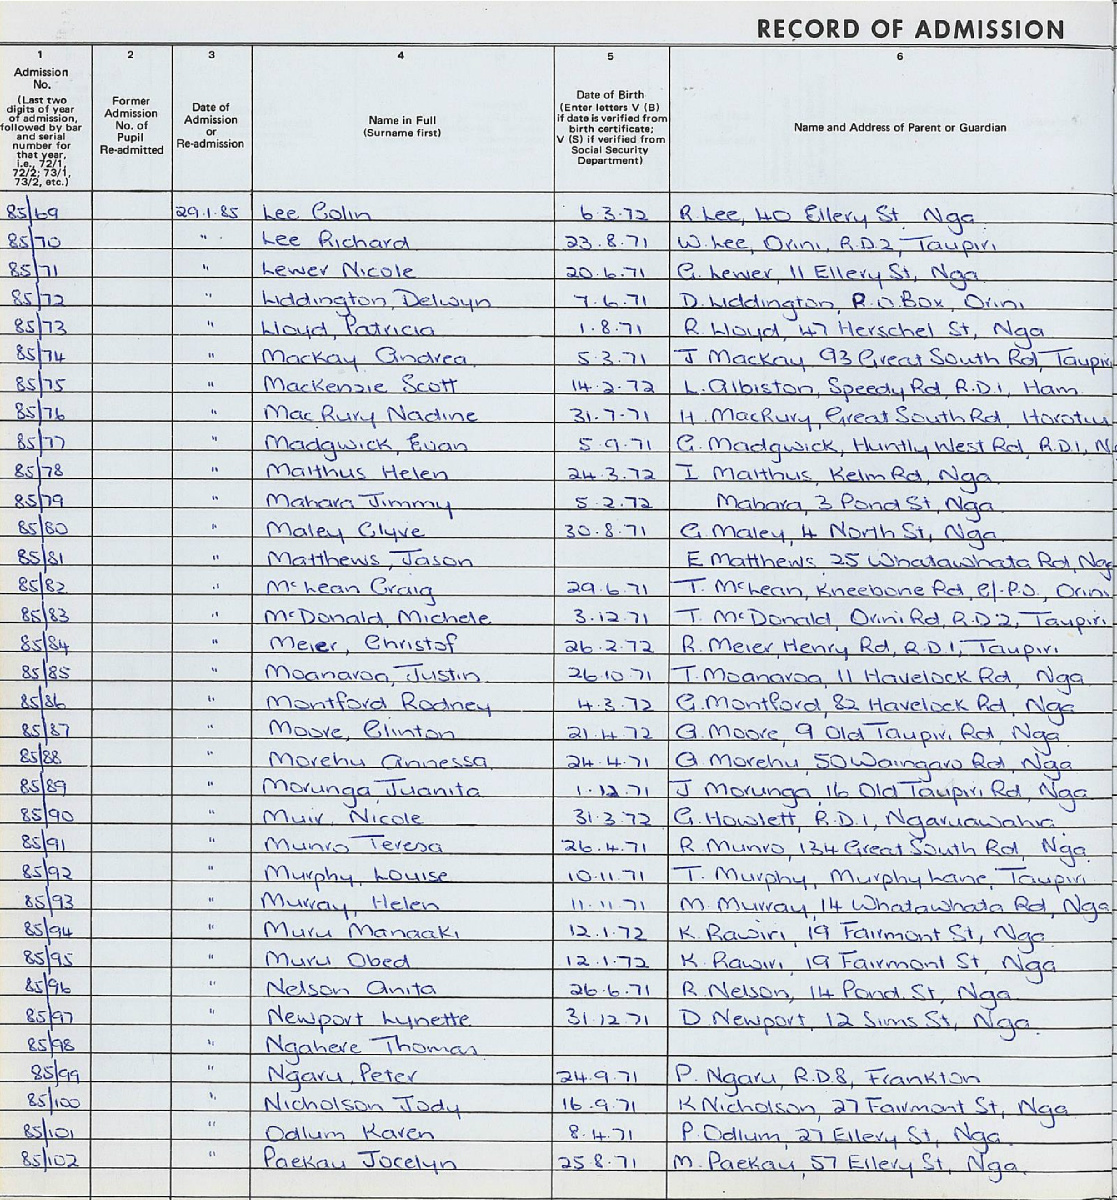 RECORD OF ADMISSION
1 2 3 4 5 6
Admission No. (Last two digits of year of admission, followed by bar and serial number for that year, i.e., 72/1, 72/2; 73/1, 73/2, etc.)
Former Admission No. of Pupil Re-admitted
Date of Admission or Re-admission
Name in Full (Surname first)
Date of Birth (Enter letters V (B) if date is verified from birth certificate; V (S) if verified from Social Security Department)
Name and Address of Parent or Guardian
85/69 29.1.85 Lee Colin 6.3.72 R. Lee, 40 Ellery St Nga
85/70 " Lee Richard 23.8.71 W. Lee, Orini, R.D.2, Taupiri
85/71 " Lewer Nicole 20.6.71 G. Lewer, 11 Ellery St, Nga
85/72 " Liddington, Delwyn 7.6.71 D. Liddington, P.O. Box, Orini
85/73 " Lloyd, Patricia 1.8.71 R. Lloyd, 47 Herschel St, Nga
85/74 " Mackay Andrea 5.3.71 J Mackay, 93 Great South Rd, Taupiri
85/75 " MacKenzie Scott 14.2.72 L. Albiston, Speedy Rd, R.D.1, Ham
85/76 " MacRury Nadine 31.7.71 H. MacRury, Great South Rd, Horotiu
85/77 " Madgwick, Euan 5.9.71 G. Madgwick, Huntly West Rd, R.D.1, N
85/78 " Malthus Helen 24.3.72 I Malthus, Kelm Rd, Nga
85/79 " Mahara Jimmy 5.2.72 Mahara, 3 Pond St, Nga
85/80 " Maley Clyve 30.8.71 G. Maley, 4 North St, Nga
85/81 " Matthews, Jason E Matthews 25 Whatawhata Rd, Nga
85/82 " McLean Craig 29.6.71 T. McLean, Kneebone Rd, c/-P.O., Orini
85/83 " McDonald, Michele 3.12.71 T. McDonald, Orini Rd, R.D.2, Taupiri
85/84 " Meier, Christof 26.2.72 R. Meier, Henry Rd, R.D.1, Taupiri
85/85 " Moanaroa, Justin 26.10.71 T. Moanaroa, 11 Havelock Rd, Nga
85/86 " Montford Rodney 4.3.72 G. Montford, 82 Havelock Rd, Nga
85/87 " Moore, Clinton 21.4.72 G. Moore, 9 Old Taupiri Rd, Nga
85/88 " Morehu Annessa 24.4.71 A Morehu, 50 Waingaro Rd, Nga
85/89 " Morunga Juanita 1.12.71 J Morunga, 16 Old Taupiri Rd, Nga
85/90 " Muir, Nicole 31.3.72 G. Howlett, R.D.1, Ngaruawahia
85/91 " Munro Teresa 26.4.71 R. Munro, 134 Great South Rd, Nga
85/92 " Murphy, Louise 10.11.71 T. Murphy, Murphy Lane, Taupiri
85/93 " Murray, Helen 11.11.71 M. Murray, 14 Whatawhata Rd, Nga
85/94 " Muru Manaaki 12.1.72 K. Rawiri, 19 Fairmont St, Nga
85/95 " Muru Obed 12.1.72 K. Rawiri, 19 Fairmont St, Nga
85/96 " Nelson Anita 26.6.71 R. Nelson, 14 Pond St, Nga
85/97 " Newport Lynette 31.12.71 D. Newport, 12 Sims St, Nga
85/98 " Ngahere Thomas
85/99 " Ngaru, Peter 24.9.71 P. Ngaru, R.D.8, Frankton
85/100 " Nicholson Jody 16.9.71 K Nicholson, 27 Fairmont St, Nga
85/101 " Odlum Karen 8.4.71 P. Odlum, 27 Ellery St, Nga
85/102 " Paekau Jocelyn 25.8.71 M. Paekau, 57 Ellery St, Nga